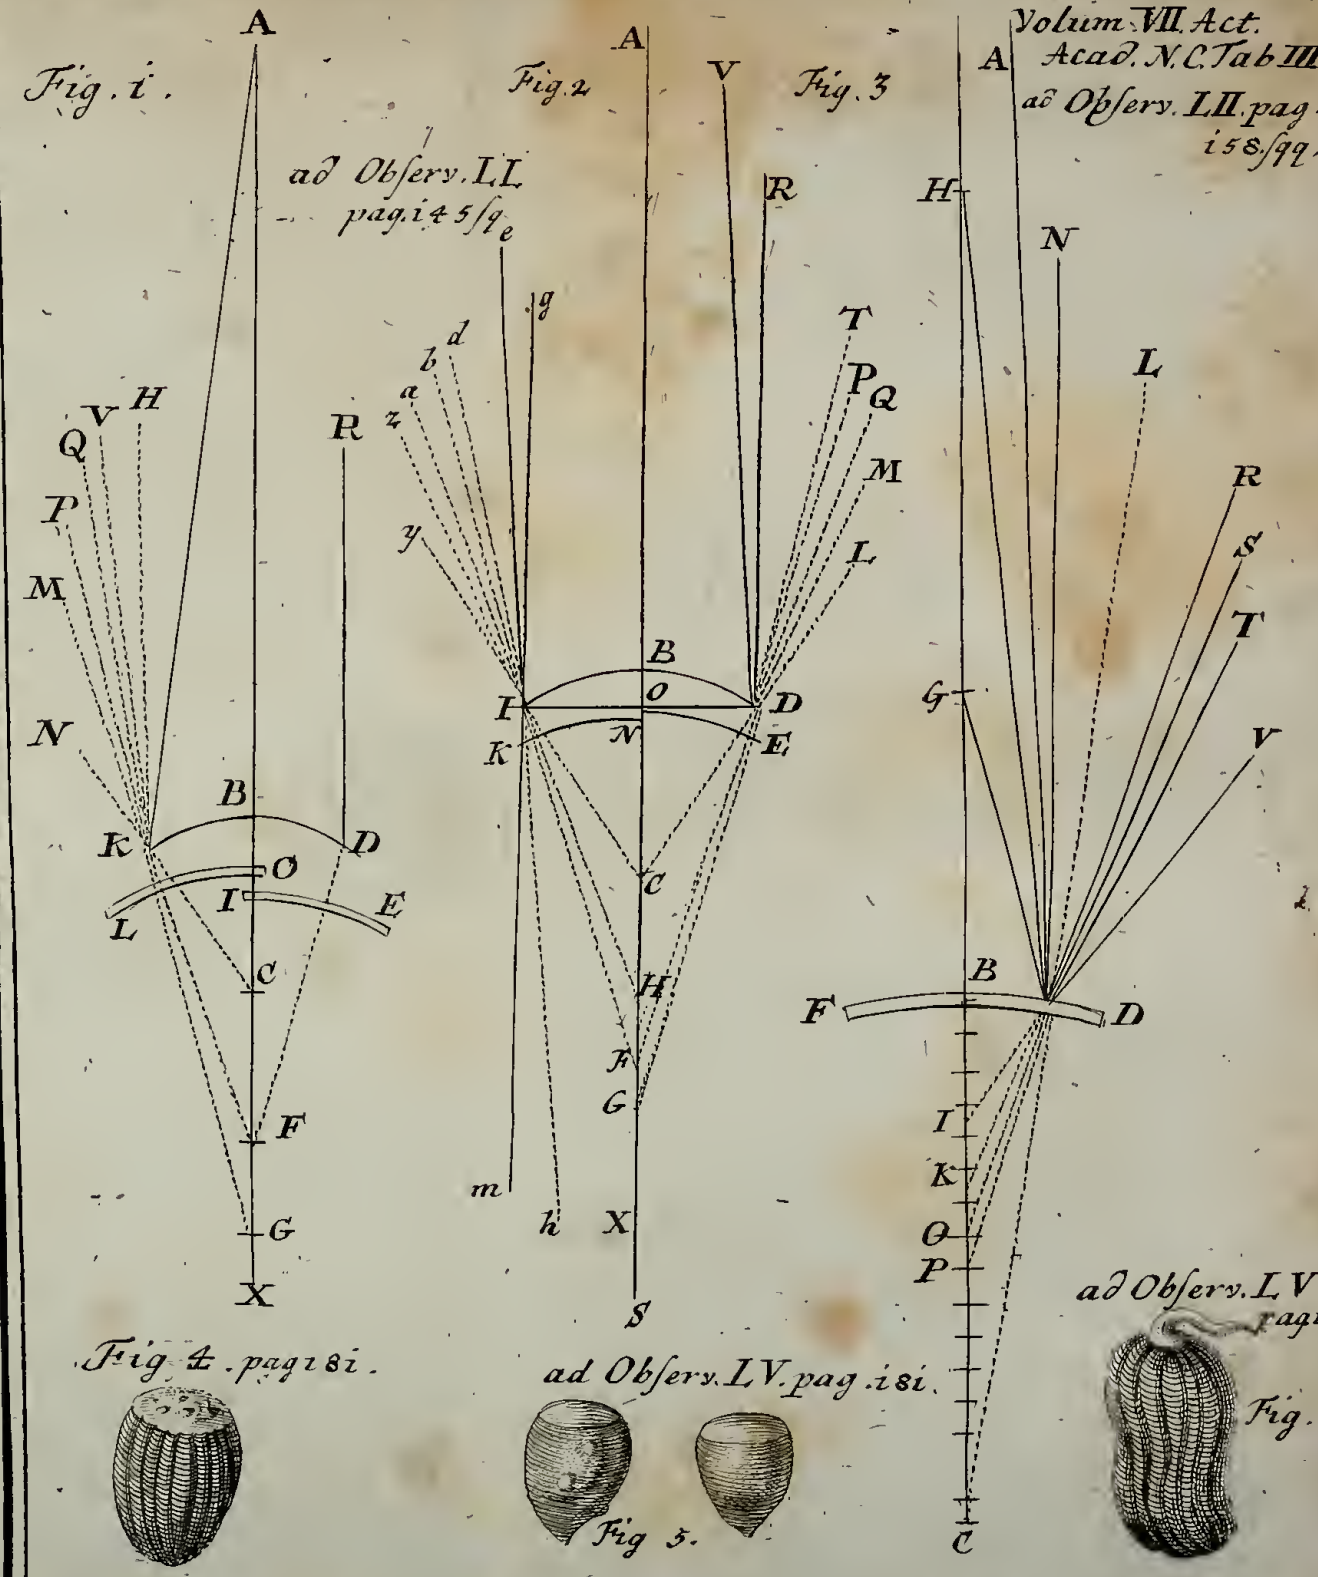 Volum. VII. Act.
Acad. N. C. Tab III
ad Obſerv. LII. pag.
i58. ſqq.
Fig. i.
ad Obſerv. LI.
pag. i45 ſq.
A
H
V
Q
P
M
N
R
B
K
D
O
I
L
E
C
F
G
X
Fig. 2
A
V
R
e
g
d
b
a
z
y
T
P
Q
M
L
B
O
I
D
K
N
E
C
H
F
G
m
h
X
S
Fig. 3
A
H
N
L
R
S
T
V
G
B
F
D
I
K
O
P
C
Fig 4. pag i8i.
ad Obſerv. LV. pag. i8i.
Fig 5.
ad Obſerv. LV
Fig.